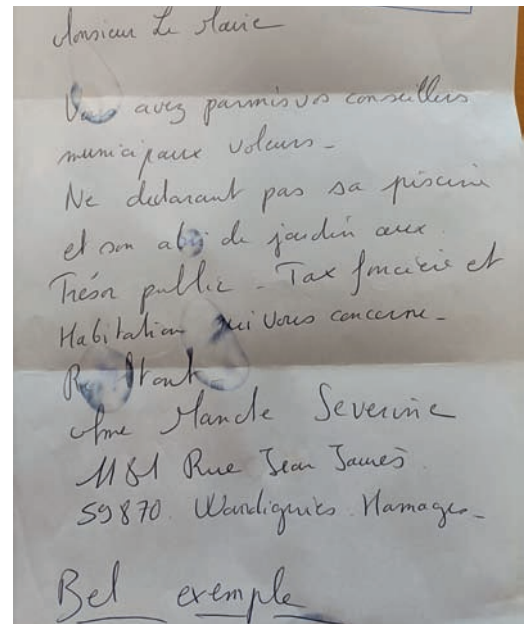 Monsieur Le Maire
Vous avez parmis vos conseillers
municipaux voleurs -
Ne declarant pas sa piscine
et son abri de jardin aux
Trésor public - Tax foncière et
Habitation qui vous concerne -
Mme Mancle Severine
1181 Rue Jean Jaurès
59870. Wandignies. Hamages -
Bel exemple